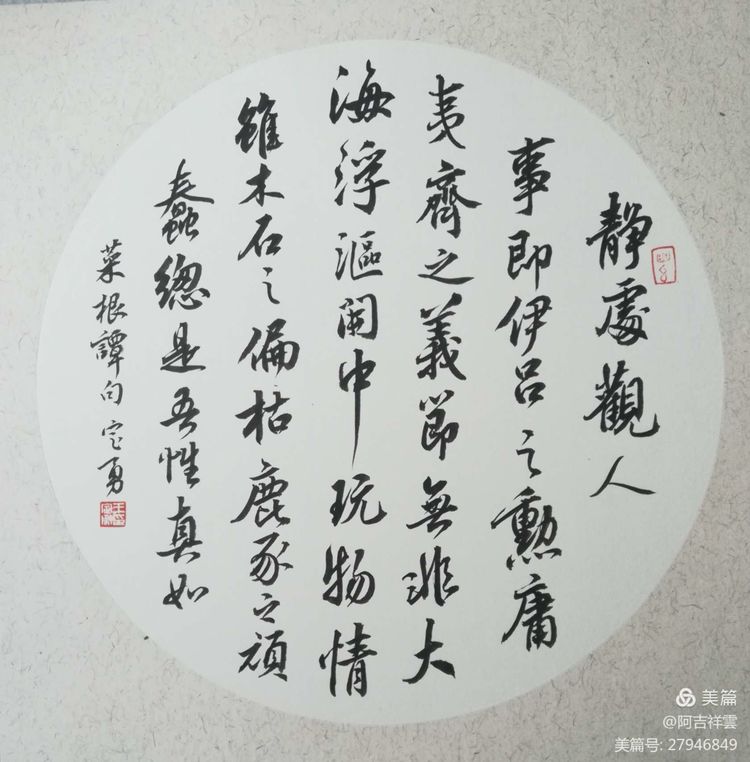 靜處觀人
事即伊呂之勳庸
夷齊之義節無非大
海浮漚閒中玩物情
雖木石之偏枯鹿豕之頑
蠢總是吾性真如
菜根譚句 定勇
美篇
@阿吉祥雲
美篇号: 27946849